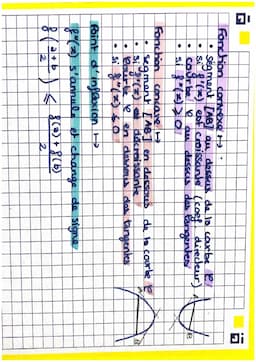 Fonction convexe ↦
• segment [AB] au dessus de la courbe φ
• si f'(x) est croissante (coef directeur)
• courbe φ au dessus des tangentes
• si f''(x) ≥ 0
Fonction concave ↦
• segment [AB] en dessous de la courbe φ
• si f'(x) est décroissante
• courbe φ en dessous des tangentes
• si f''(x) ≤ 0
Point d'inflexion ↦
f''(x) s'annule et change de signe
f(a+b/2) ≤ f(a)+f(b)/2